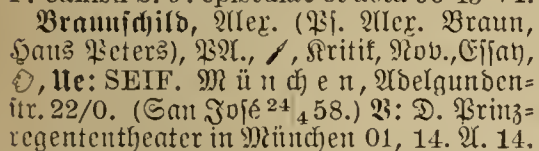 Braunschild, Alex. (Ps. Alex. Braun,
Hans Peters), PA., Kritik, Nov., Essay,
Ue: SEIF. München, Adelgunden=
str. 22/0. (San José 24/4 58.) V: D. Prinz=
regententheater in München 01, 14. A. 14.